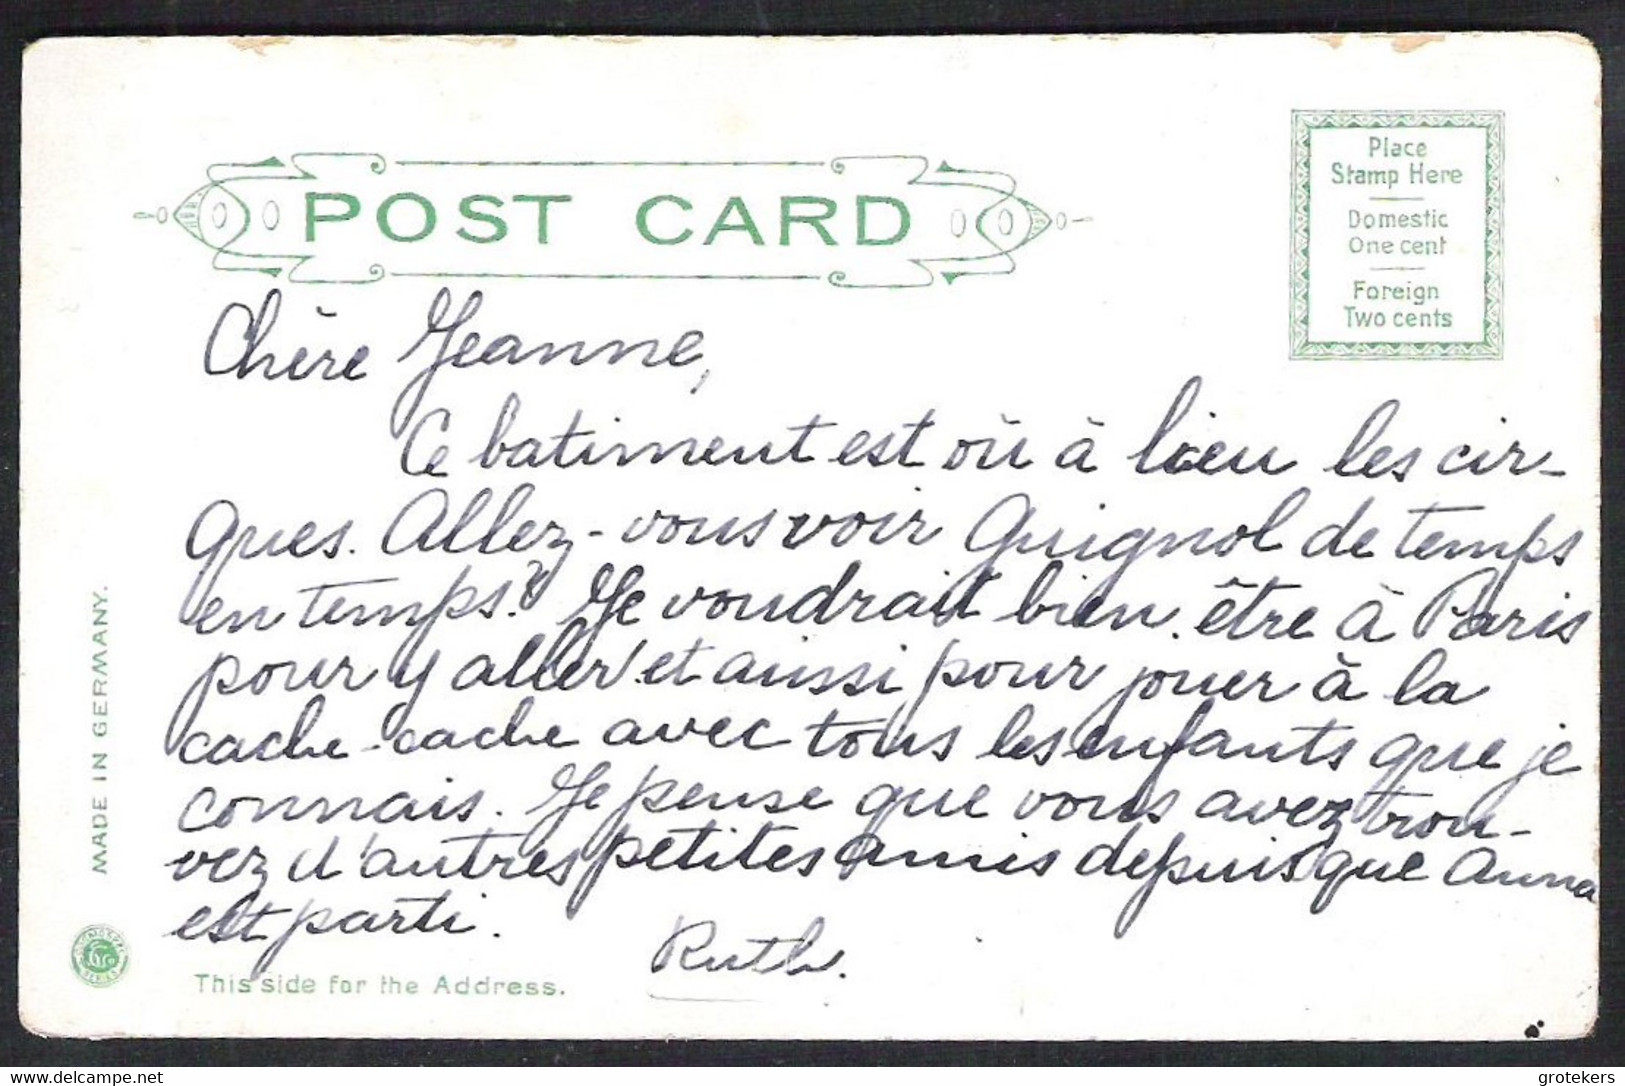 POST CARD
Place
Stamp Here
Domestic
One cent
Foreign
Two cents
Chère Jeanne,
Ce batiment est où à lieu les cir-
ques. Allez-vous voir Guignol de temps
en temps? Je voudrait bien être à Paris
pour y aller et aussi pour jouer à la
cache-cache avec tous les enfants que je
connais. Je pense que vous avez trou-
vez d'autres petites amis depuis que Anna
est parti.
Ruth.
This side for the Address.
MADE IN GERMANY.
delcampe.net
grotekers